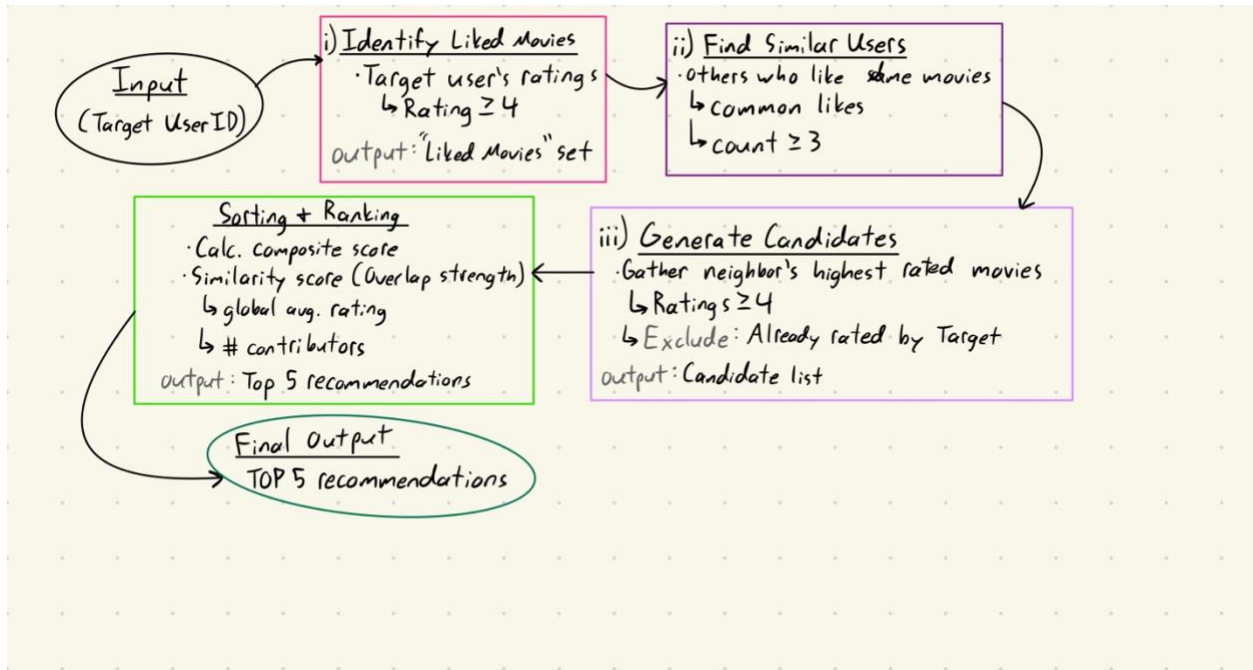 Input
(Target UserID)
i) Identify Liked Movies
· Target user's ratings
↳ Rating ≥ 4
output: "Liked Movies" set
ii) Find Similar Users
· others who like same movies
↳ common likes
↳ count ≥ 3
iii) Generate Candidates
· Gather neighbor's highest rated movies
↳ Ratings ≥ 4
↳ Exclude: Already rated by Target
output: Candidate list
Sorting + Ranking
· Calc. composite score
· Similarity score (Overlap strength)
↳ global avg. rating
↳ # contributors
output: Top 5 recommendations
Final Output
TOP 5 recommendations